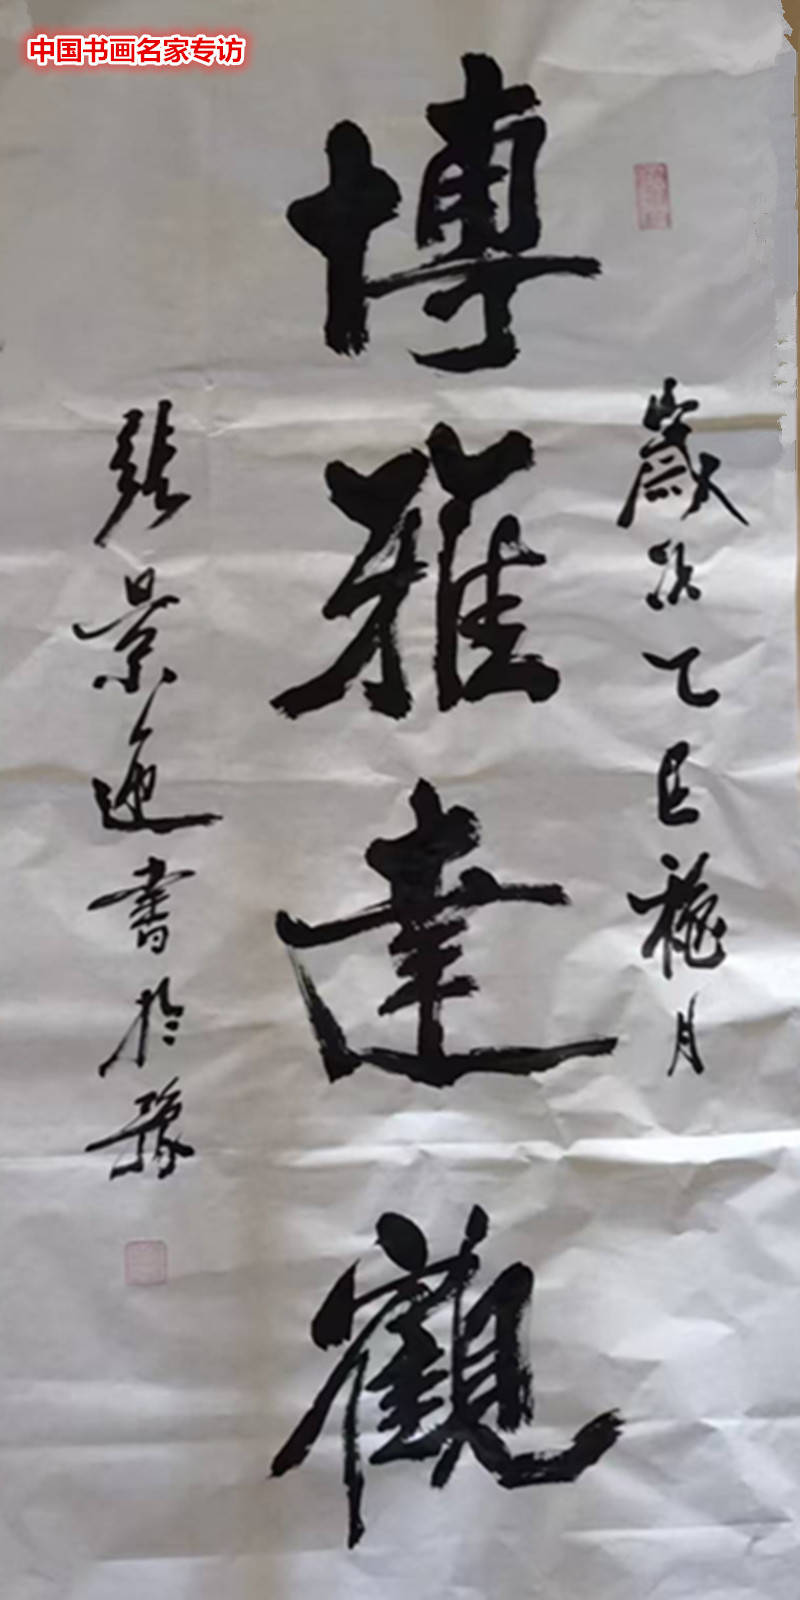 中国书画名家专访
歲次乙巳龝月
博雅達觀
張景迎書於豫